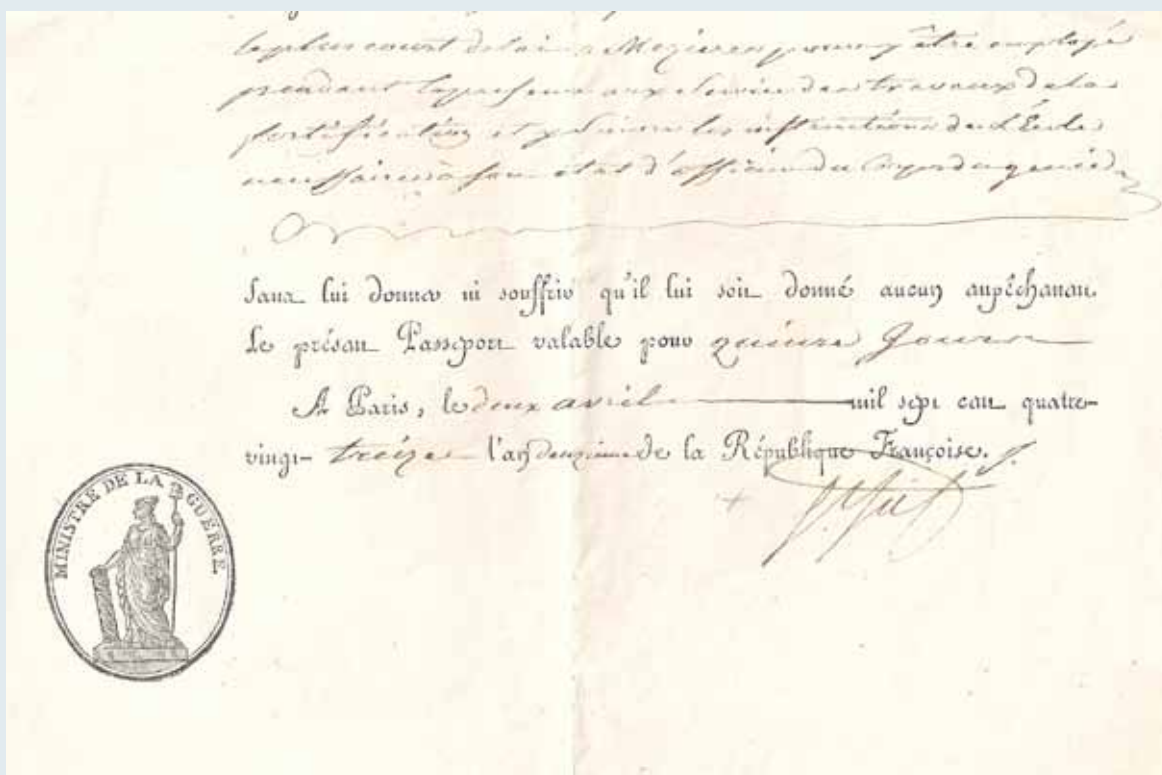 le plus court delai a Mezieres pour y être employé
pendant la presente aux travaux de la
fortification et y suivre les instructions de l'École
necessaires à son etat d'officier du Corps du genie
Sans lui donner ni souffrir qu'il lui soit donné aucun empêchement
Le présent Passeport valable pour quinze Jours
A Paris, le deux avril mil sept cent quatre-
vingt- treize l'an deuxieme de la République Françoise.
MINISTRE DE LA GUERRE.